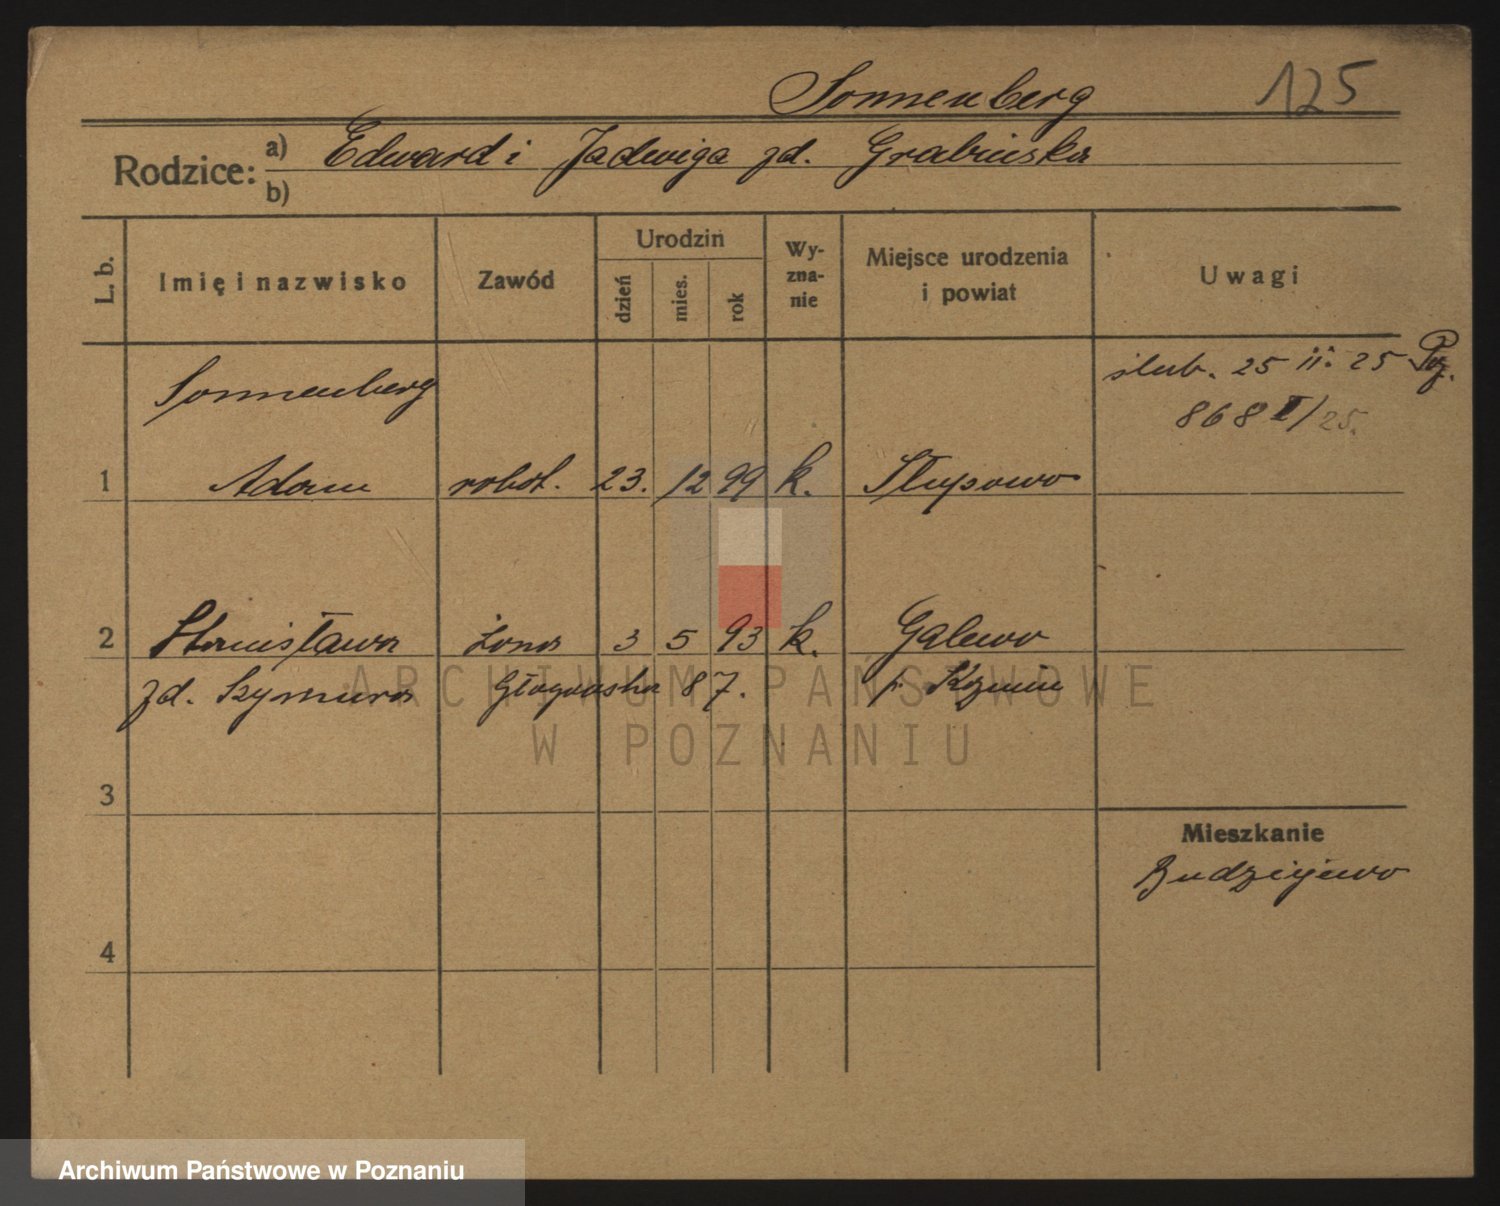 Sonnenberg 125
Rodzice: a) Edward i Jadwiga zd. Grabińska
b)
L. b. Imię i nazwisko Zawód Urodzin dzień mies. rok Wy-zna-nie Miejsce urodzenia i powiat Uwagi
Sonnenberg ślub. 25 ii. 25 Poz.
868 II/25.
1 Adam robot. 23. 12 99 k. Słupowo
2 Stanisława żona 3 5 93 k. Galewo
zd. Szymura Głogowska 87. p. Kozmin
ARCHIWUM PAŃSTWOWE
W POZNANIU
3
Mieszkanie
Budziejewo
4
Archiwum Państwowe w Poznaniu